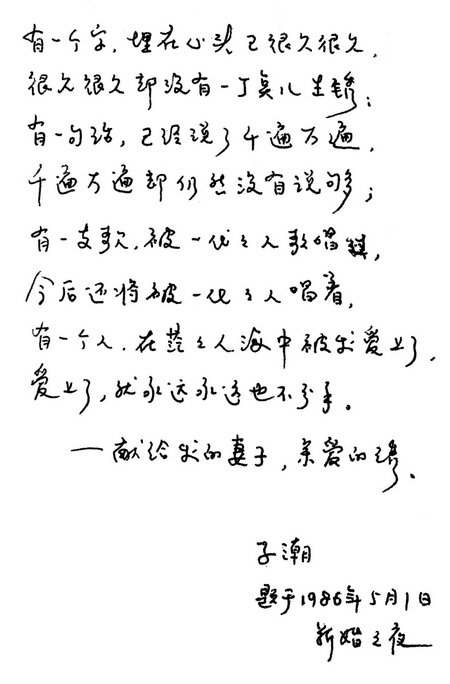 有一个字，埋在心头已很久很久，
很久很久却没有一丁奌儿生锈；
有一句话，已经说了千遍万遍，
千遍万遍却仍然没有说够；
有一支歌，被一代々人歌唱，
今后还将被一代々人唱着，
有一个人，在茫々人海中被我爱上了，
爱上了，就永远永远也不分手。
—献给我的妻子，亲爱的
子潮
题于1986年5月1日
新婚之夜